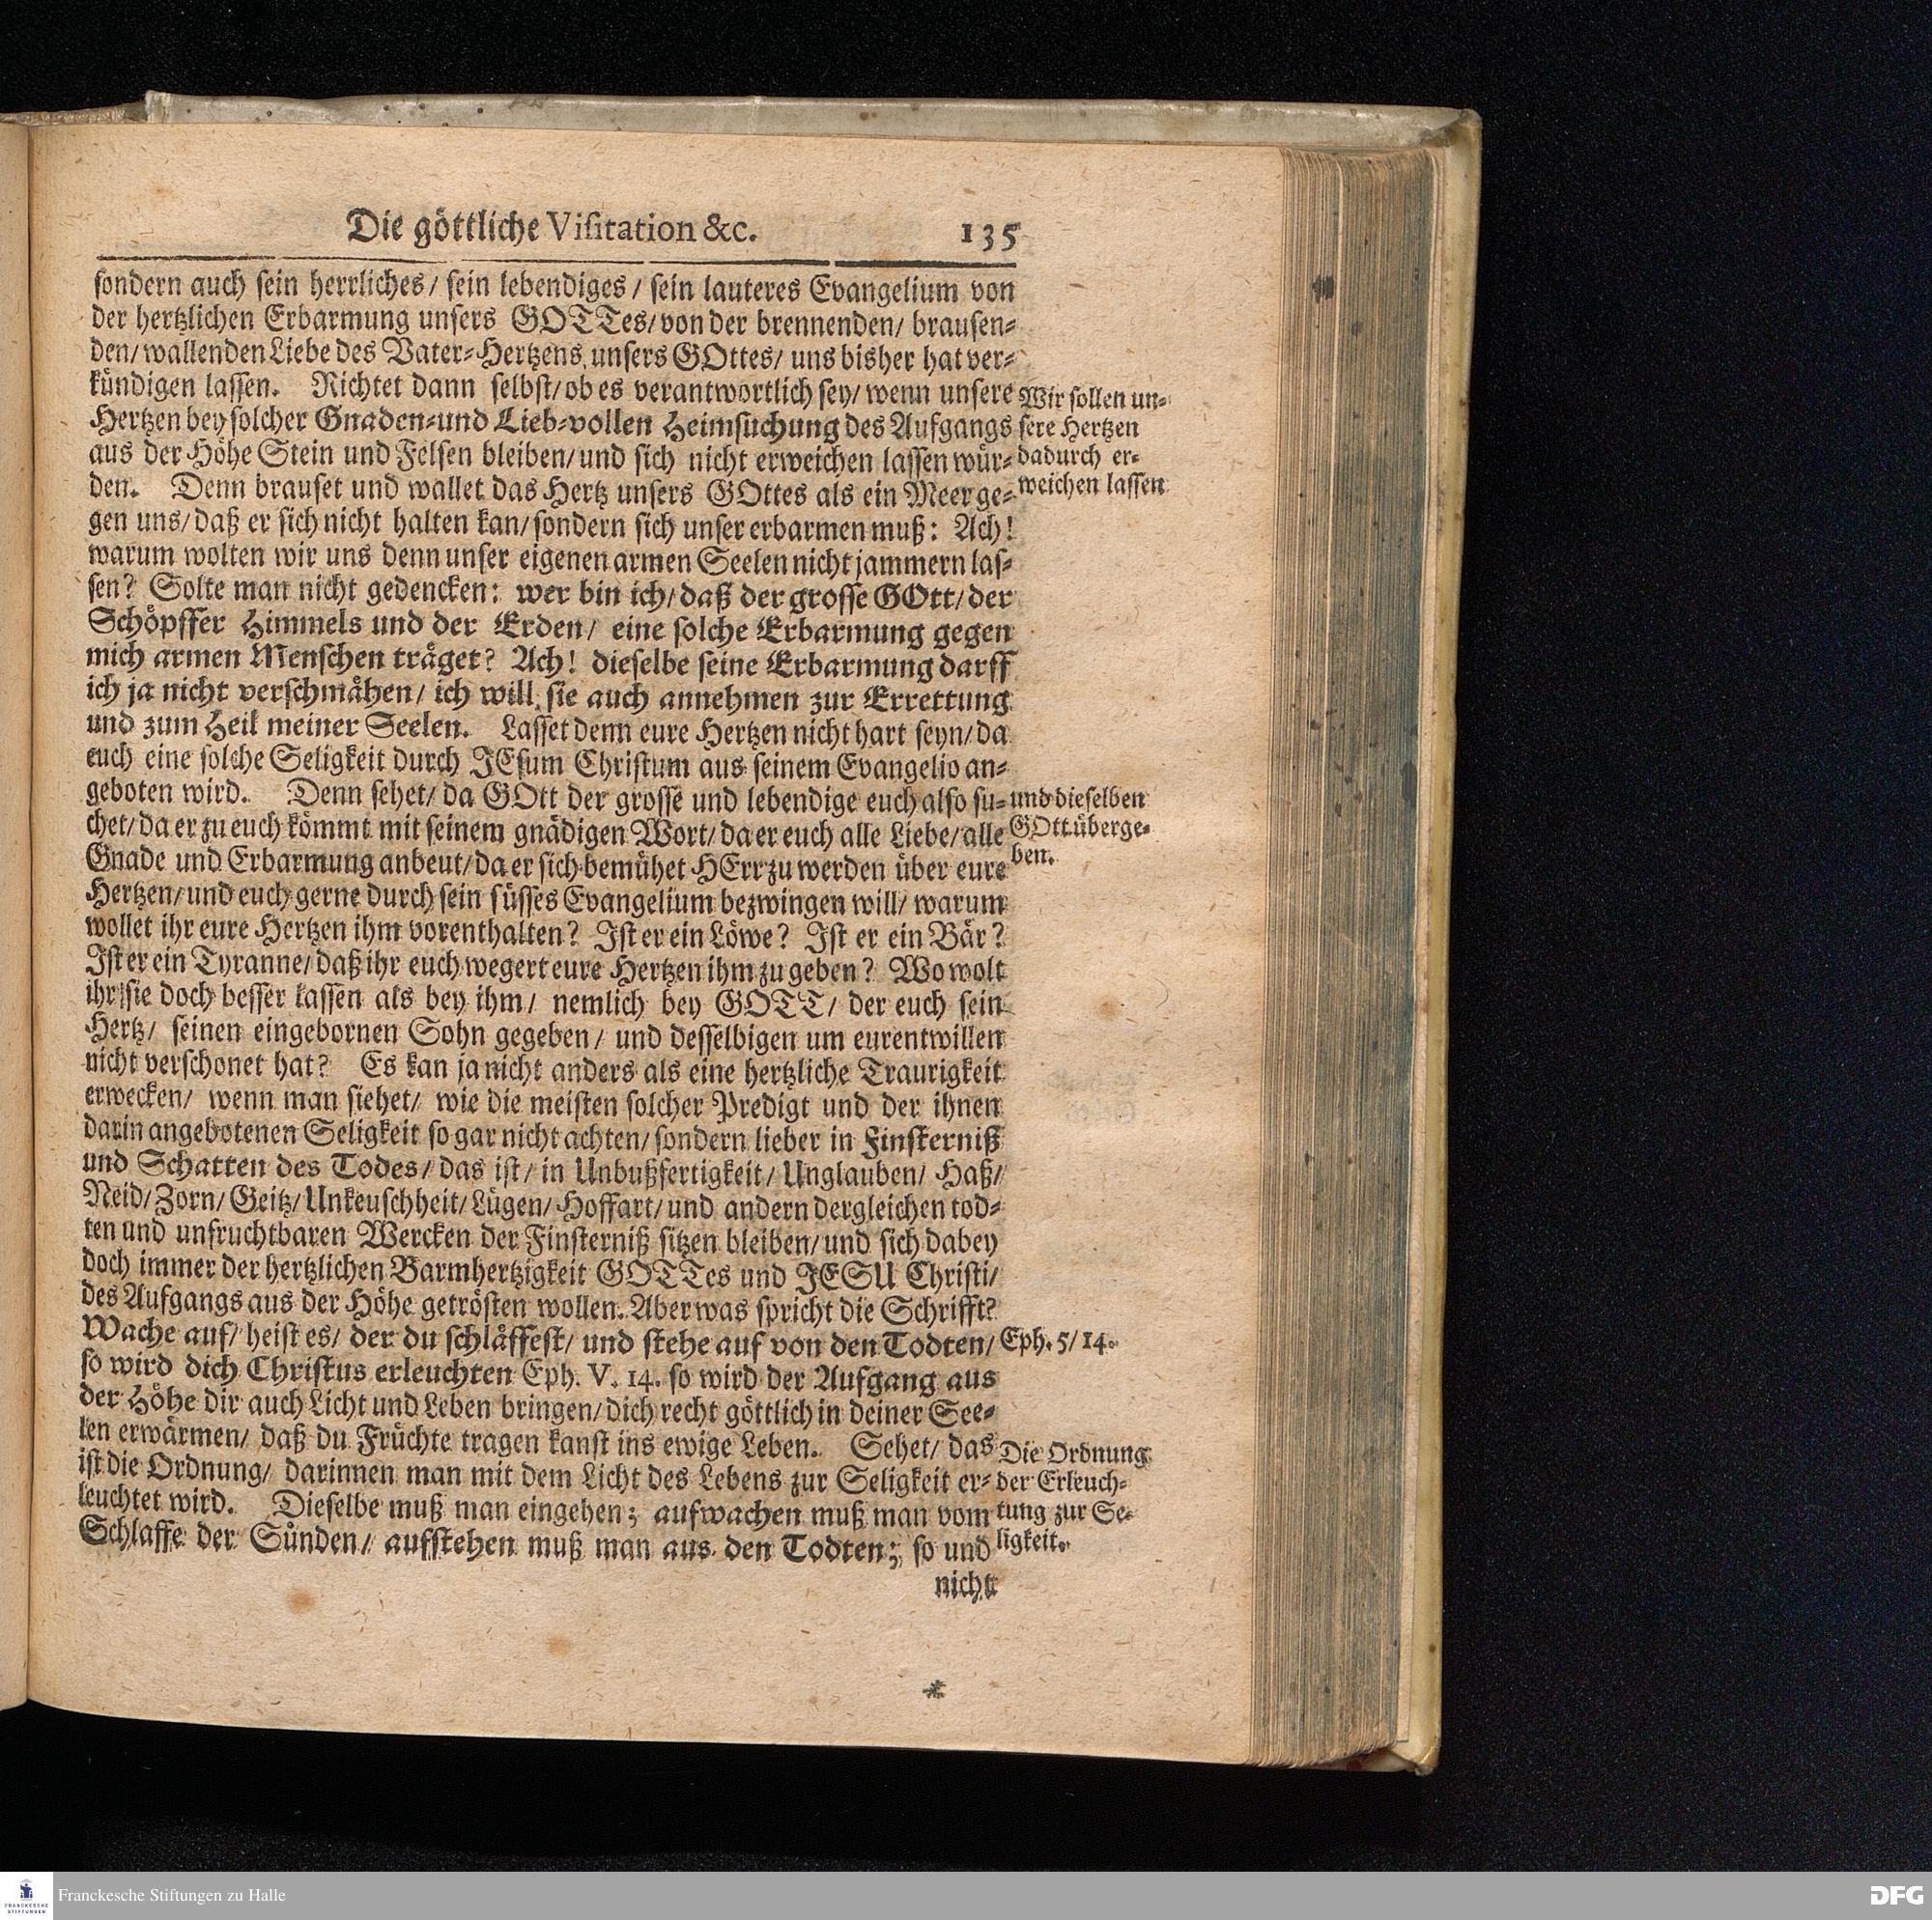 Die göttliche Visitation &c. 135
sondern auch sein herrliches/ sein lebendiges/ sein lauteres Evangelium von
der hertzlichen Erbarmung unsers GOTTes/ von der brennenden/ brausen-
den/ wallenden Liebe des Vater-Hertzens unsers GOttes/ uns bisher hat ver-
kündigen lassen. Richtet dann selbst/ ob es verantwortlich sey/ wenn unsere
Hertzen bey solcher Gnaden-und Lieb-vollen Heimsuchung des Aufgangs
aus der Höhe Stein und Felsen bleiben/ und sich nicht erweichen lassen wür-
den. Denn brauset und wallet das Hertz unsers GOttes als ein Meer ge-
gen uns/ daß er sich nicht halten kan/ sondern sich unser erbarmen muß: Ach!
warum wolten wir uns denn unser eigenen armen Seelen nicht jammern las-
sen? Solte man nicht gedencken: wer bin ich/ daß der grosse GOtt/ der
Schöpffer Himmels und der Erden/ eine solche Erbarmung gegen
mich armen Menschen träget? Ach! dieselbe seine Erbarmung darff
ich ja nicht verschmähen/ ich will sie auch annehmen zur Errettung
und zum Heil meiner Seelen. Lasset denn eure Hertzen nicht hart seyn/ da
euch eine solche Seligkeit durch JEsum Christum aus seinem Evangelio an-
geboten wird. Denn sehet/ da GOtt der grosse und lebendige euch also su-
chet/ da er zu euch kömmt mit seinem gnädigen Wort/ da er euch alle Liebe/ alle
Gnade und Erbarmung anbeut/ da er sich bemühet HErr zu werden über eure
Hertzen/ und euch gerne durch sein süsses Evangelium bezwingen will/ warum
wollet ihr eure Hertzen ihm vorenthalten? Ist er ein Löwe? Ist er ein Bär?
Ist er ein Tyranne/ daß ihr euch wegert eure Hertzen ihm zu geben? Wo wolt
ihr sie doch besser lassen als bey ihm/ nemlich bey GOTT/ der euch sein
Hertz/ seinen eingebornen Sohn gegeben/ und desselbigen um eurentwillen
nicht verschonet hat? Es kan ja nicht anders als eine hertzliche Traurigkeit
erwecken/ wenn man siehet/ wie die meisten solcher Predigt und der ihnen
darin angebotenen Seligkeit so gar nicht achten/ sondern lieber in Finsterniß
und Schatten des Todes/ das ist/ in Unbußfertigkeit/ Unglauben/ Haß/
Neid/ Zorn/ Geitz/ Unkeuschheit/ Lügen/ Hoffart/ und andern dergleichen tod-
ten und unfruchtbaren Wercken der Finsterniß sitzen bleiben/ und sich dabey
doch immer der hertzlichen Barmhertzigkeit GOTTes und JESU Christi/
des Aufgangs aus der Höhe getrösten wollen. Aber was spricht die Schrifft?
Wache auf/ heist es/ der du schläffest/ und stehe auf von den Todten/
so wird dich Christus erleuchten Eph. V. 14. so wird der Aufgang aus
der Höhe dir auch Licht und Leben bringen/ dich recht göttlich in deiner See-
len erwärmen/ daß du Früchte tragen kanst ins ewige Leben. Sehet/ das
ist die Ordnung/ darinnen man mit dem Licht des Lebens zur Seligkeit er-
leuchtet wird. Dieselbe muß man eingehen; aufwachen muß man vom
Schlaffe der Sünden/ aufstehen muß man aus den Todten; so und
nicht
Wir sollen un-
sere Hertzen
dadurch er-
weichen lassen
und dieselben
GOtt überge-
ben.
Eph. 5/14.
Die Ordnung
der Erleuch-
tung zur Se-
ligkeit.
*
Franckesche Stiftungen zu Halle
FRANCKESCHE
STIFTUNGEN
DFG